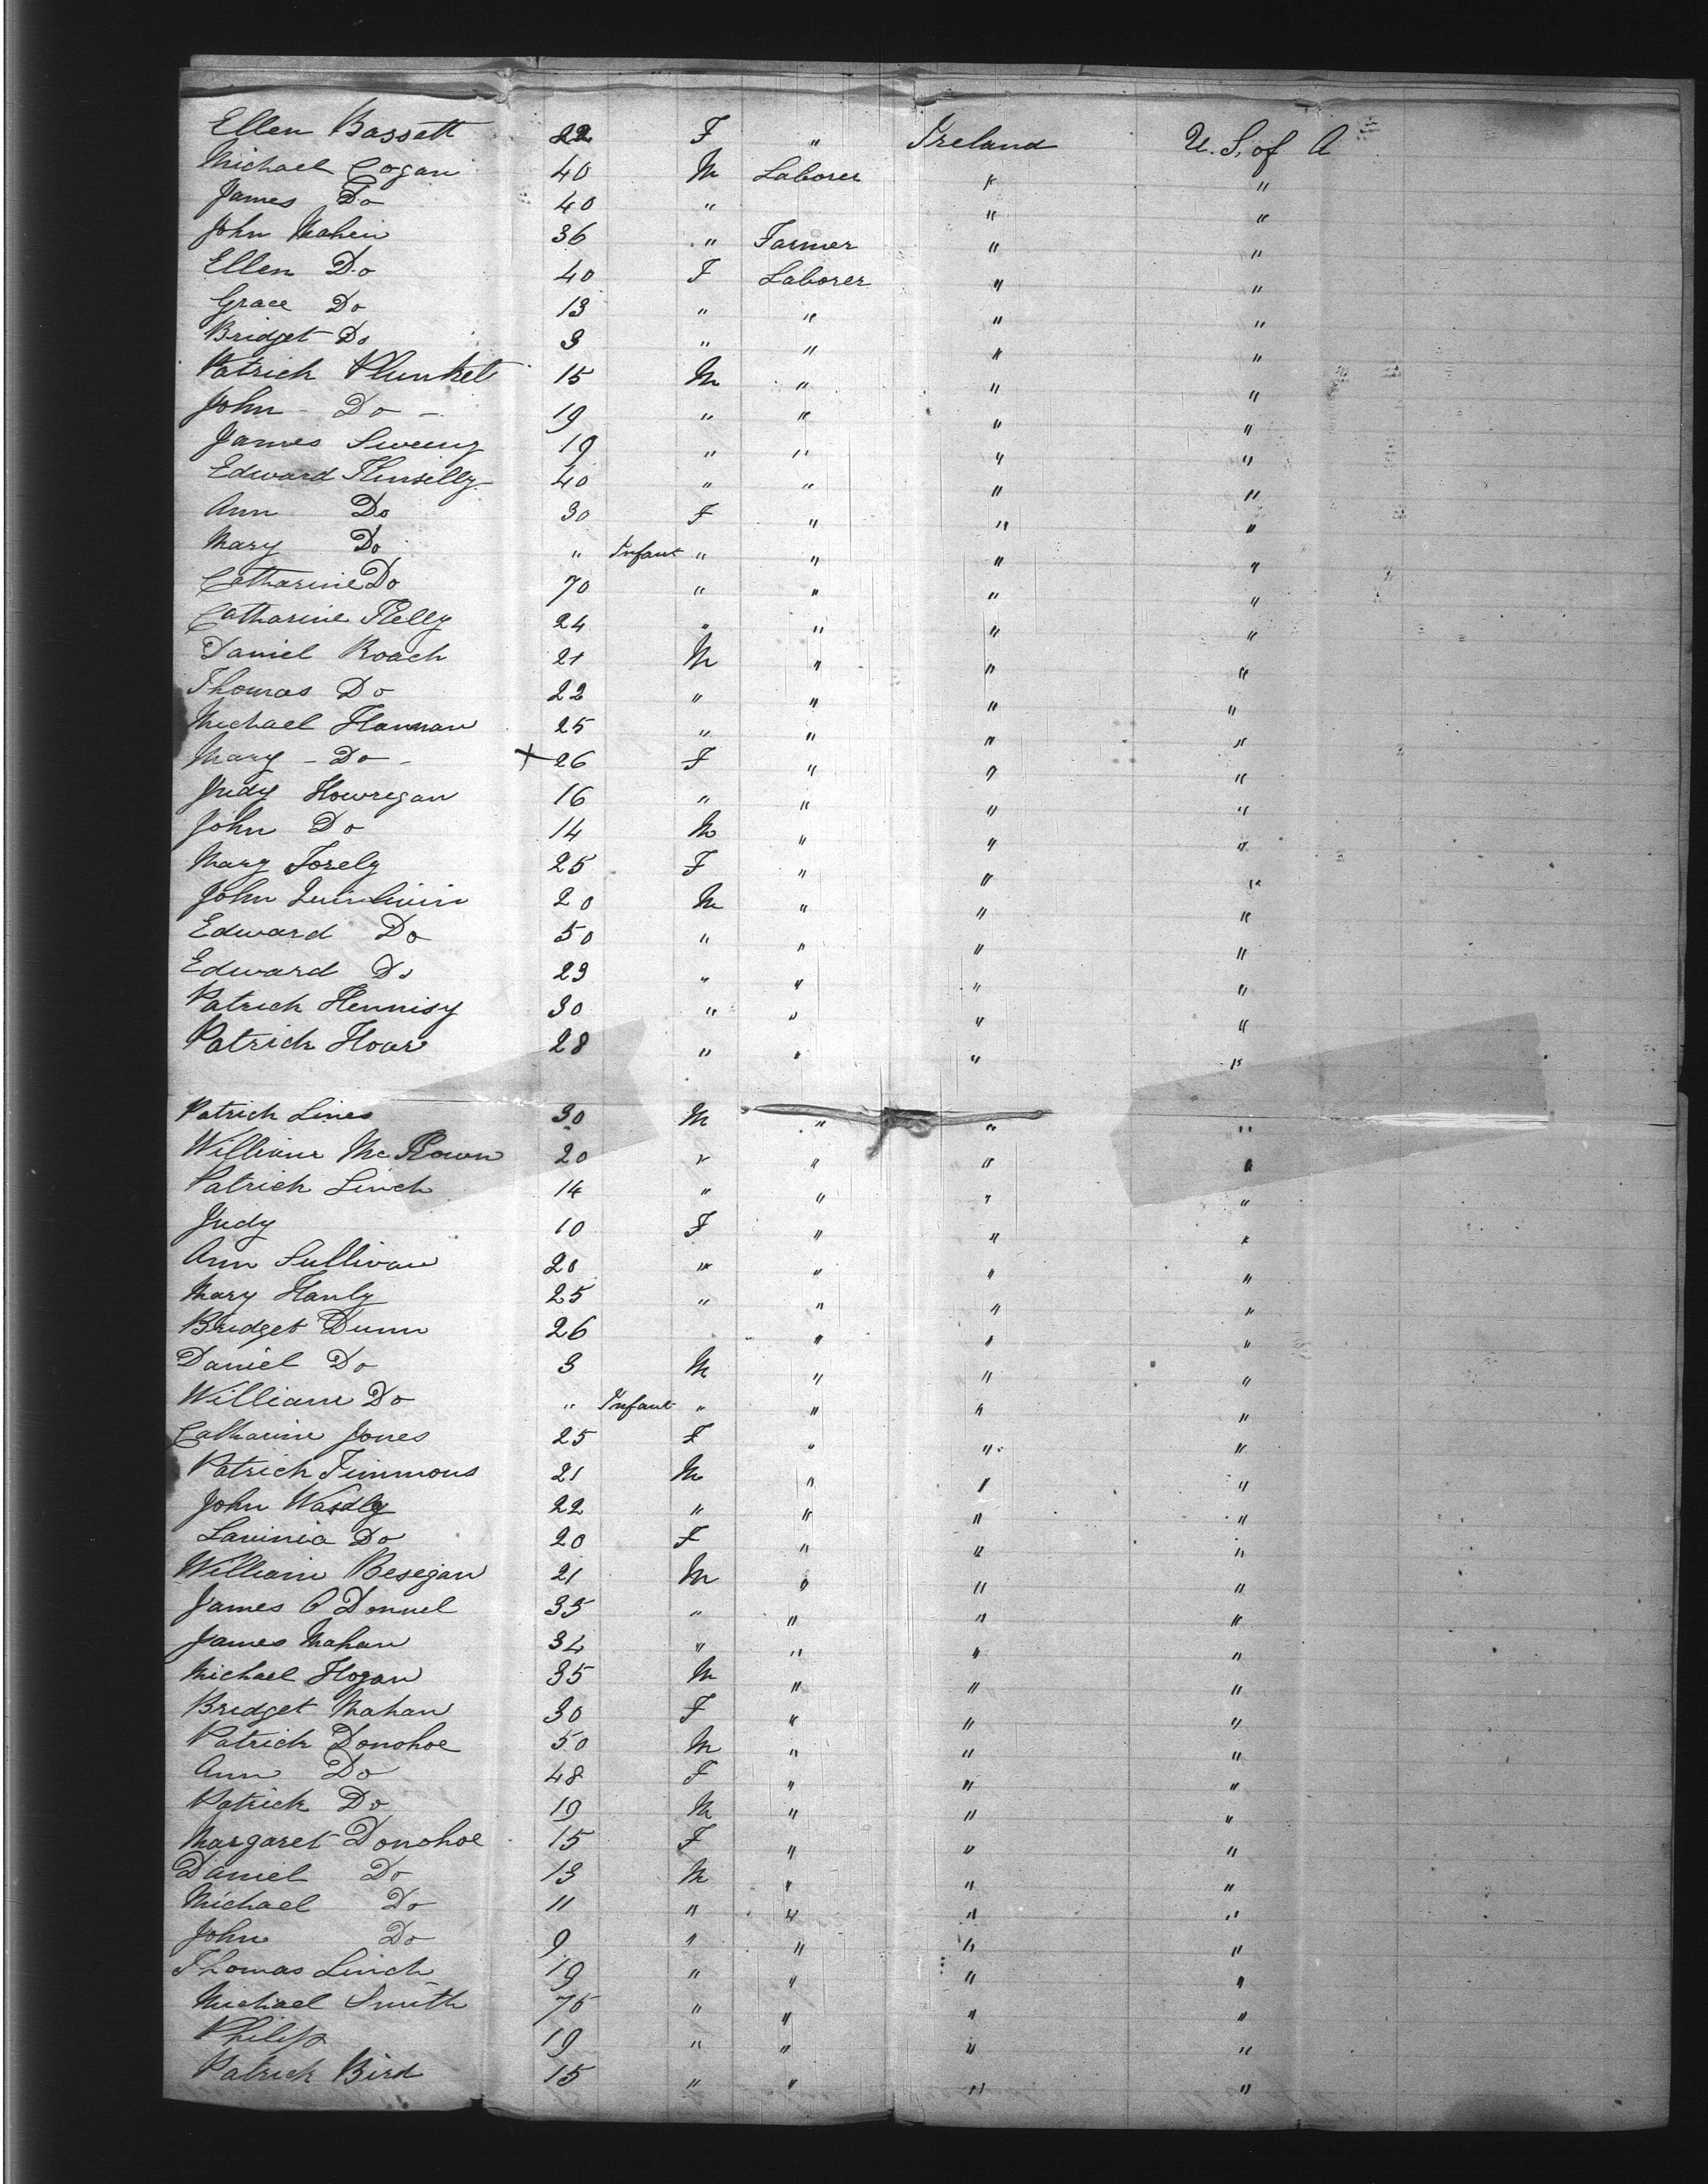 Ellen Bassett 22 F " Ireland U. S. of A
Michael Cogan 40 M Laborer " "
James Do 40 " " "
John Mahen 36 " Farmer " "
Ellen Do 40 F Laborer " "
Grace Do 13 " " " "
Bridget Do 3 " " " "
Patrick Plunket 15 M " " "
John - Do - 19 " " " "
James Sweeny 19 " " " "
Edward Kinselly 40 " " " "
Ann Do 30 F " " "
Mary Do " Infant " " " "
Catharine Do 70 " " " "
Catharine Kelly 24 " " " "
Daniel Roach 21 M " " "
Thomas Do 22 " " " "
Michael Hannan 25 " " " "
Mary - Do - + 26 F " " "
Judy Howregan 16 " " " "
John Do 14 M " " "
Mary Forely 25 F " " "
John 20 M " " "
Edward Do 50 " " " "
Edward Do 23 " " " "
Patrick Hennisy 30 " " " "
Patrick Hoar 28 " " " "
Patrick Lines 30 M " " "
William McKown 20 " " " "
Patrick Linch 14 " " " "
Judy 10 F " " "
Ann Sullivan 20 " " " "
Mary Hanly 25 " " " "
Bridget Dunn 26 " " "
Daniel Do 3 M " " "
William Do " Infant " " " "
Catharine Jones 25 F " " "
Patrick Timmons 21 M " " "
John Wasdly 22 " " " "
Lavinia Do 20 F " " "
William Besegan 21 M " " "
James O Donnel 35 " " " "
James Mahan 34 " " " "
Michael Hogan 35 M " " "
Bridget Mahan 30 F " " "
Patrick Donohoe 50 M " " "
Ann Do 48 F " " "
Patrick Do 19 M " " "
Margaret Donohoe 15 F " " "
Daniel Do 13 M " " "
Michael Do 11 " " " "
John Do 9 " " " "
Thomas Linch 19 " " " "
Michael Smith 75 " " " "
Philip 19 " " " "
Patrick Bird 15 " " " "